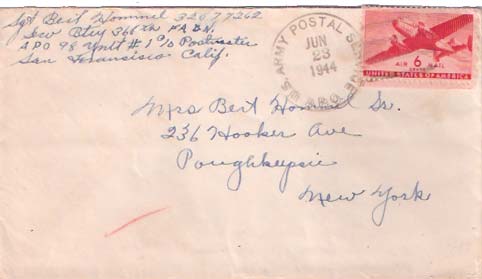 Sgt Bert Hommel 32077262
Serv Btry 366th F.A. B.N.
APO 98 Unit #1 c/o Postmaster
San Fransisco Calif.
U.S. ARMY POSTAL SERVICE
JUN
23
1944
A.P.O.
6
AIR MAIL
CENTS
UNITED STATES OF AMERICA
Mrs Bert Hommel Sr.
236 Hooker Ave
Poughkeepsie
New York